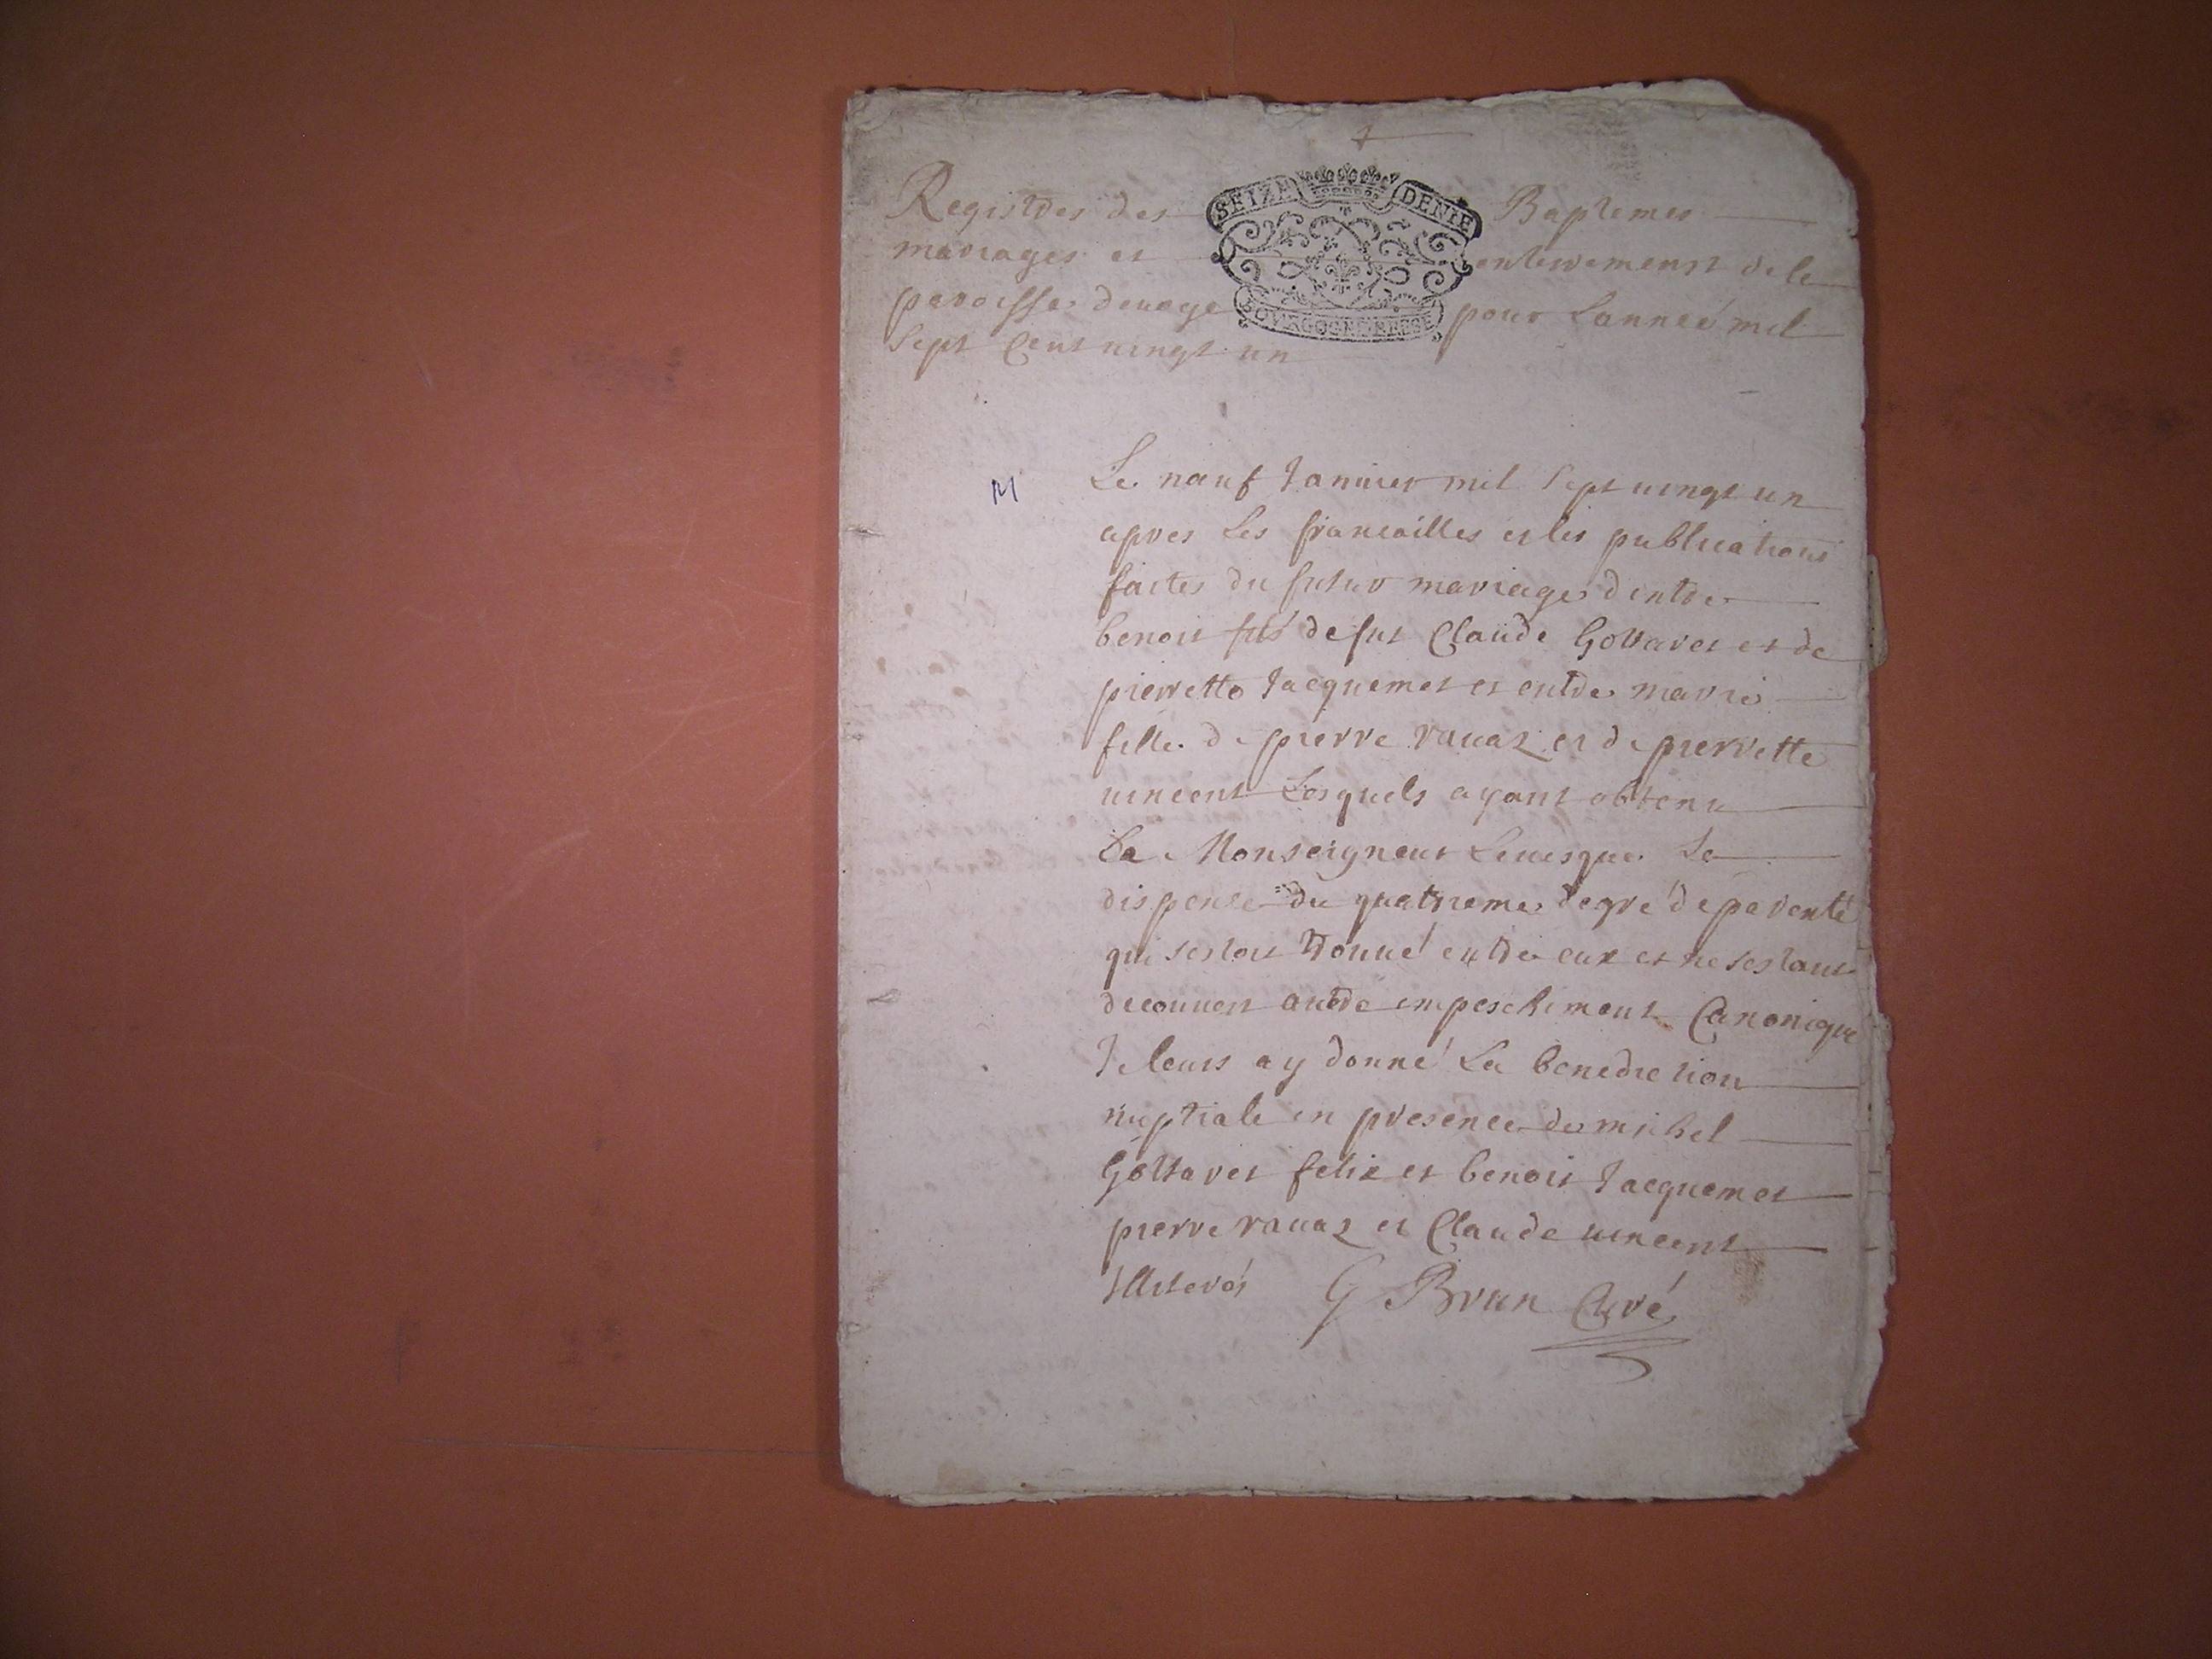 Registres des Baptemes
mariages et enterrements de la
paroisse de uoge pour Lanneé mil
Sept Cent uingt un
SEIZE DENIE
BOURGOGNE BRESSE
M
Le neuf Januier mil Sept uingt un
apres Les fiancailles et les publications
faites du futur mariage dentre
benoit fils de fut Claude Gottaret et de
pierrette Jacquemet et entre marie
fille de pierre rauaz et de pierrette
uincent Lesquels ayant obtenu
De Monseigneur Leuesque La
dispense du quatrieme degré de parenté
qui sestoit trouué entre eux et ne sestant
decouuert autre empeschement Canonique
Je leurs ay donné La benediction
nuptiale en presence de michel
Gottaret felix et benoit Jacquemet
pierre rauaz et Claude uincent
Illiterés G Brun Curé